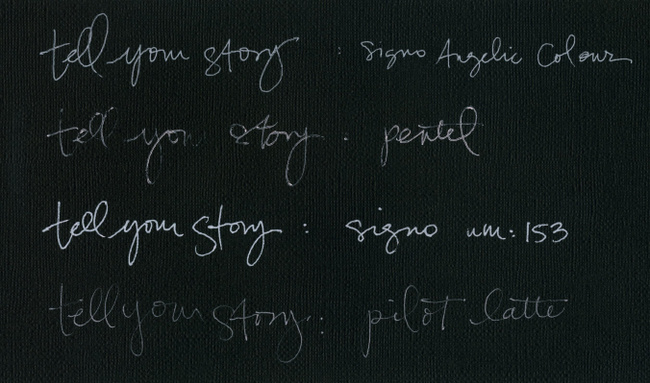 tell your story : signo Angelic Colour
tell your story . pentel
tell your story : signo um: 153
tell your story : pilot latte